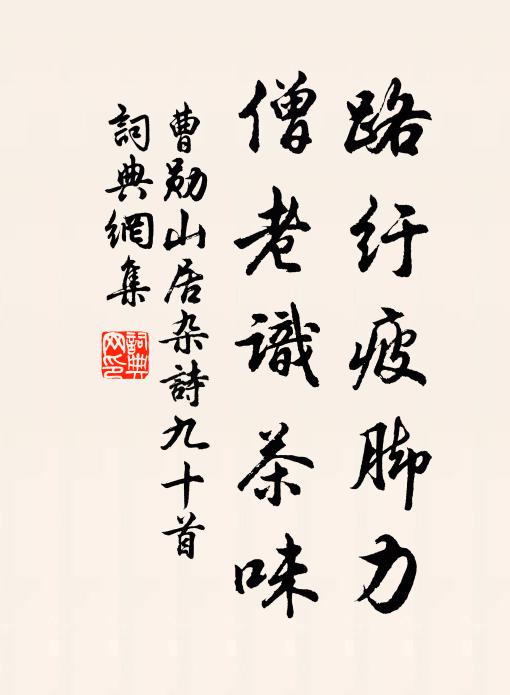 路纡疲脚力
僧老識茶味
曹勋山居杂詩九十首
詞典網集
詞典網印